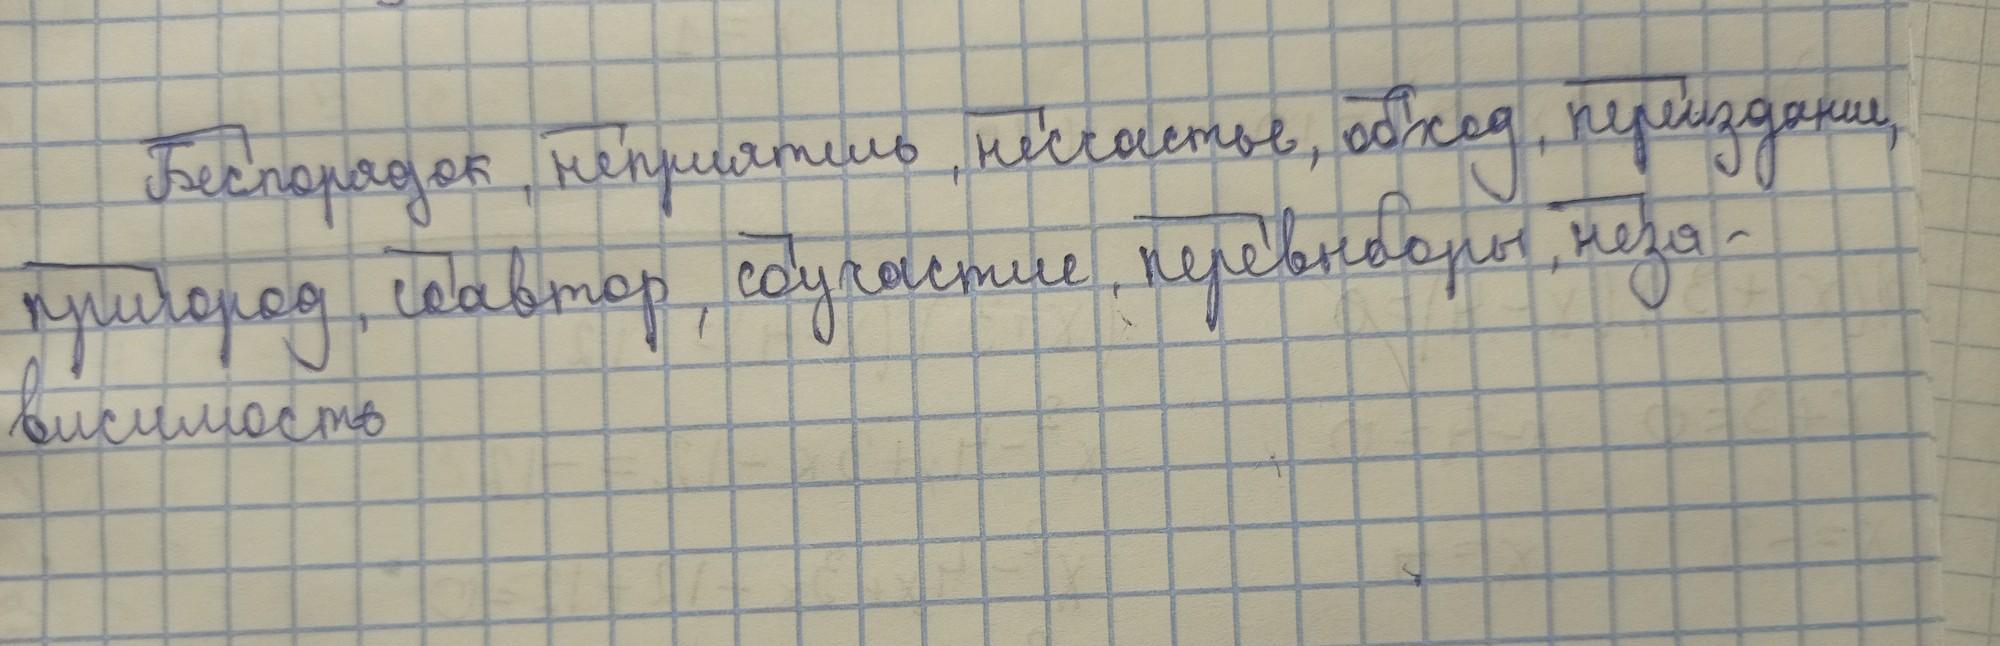 Беспорядок, неприятель, несчастье, обход, переиздание,
пригород, соавтор, соучастие, перевыборы, неза-
висимость